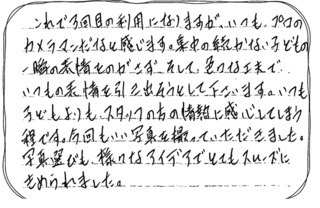 これで3回目の利用になりますが、いつも、プロの
カメラマンだなと感じます。集中の続かない子どもの
一瞬の表情をのがさず、そして、色々な工夫で、
いつもの表情を引き出そうとして下さいます。いつも
子どもよりも、スタッフの方の情熱に感心してしまう
程です。今回もいい写真を撮っていただきました。
写真選びも、様々なアイデアでとてもスムーズに
きめられました。